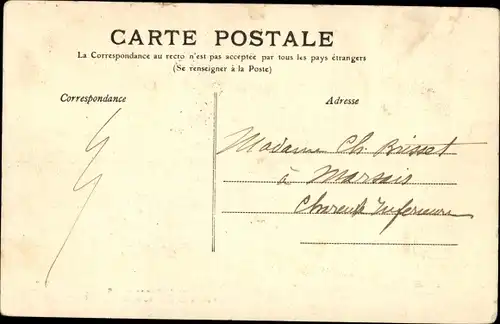 CARTE POSTALE
La Correspondance au recto n'est pas acceptée par tous les pays étrangers
(Se renseigner à la Poste)
Correspondance
Adresse
Madame Ch. Brisset
à Marsais
Charente Inférieure